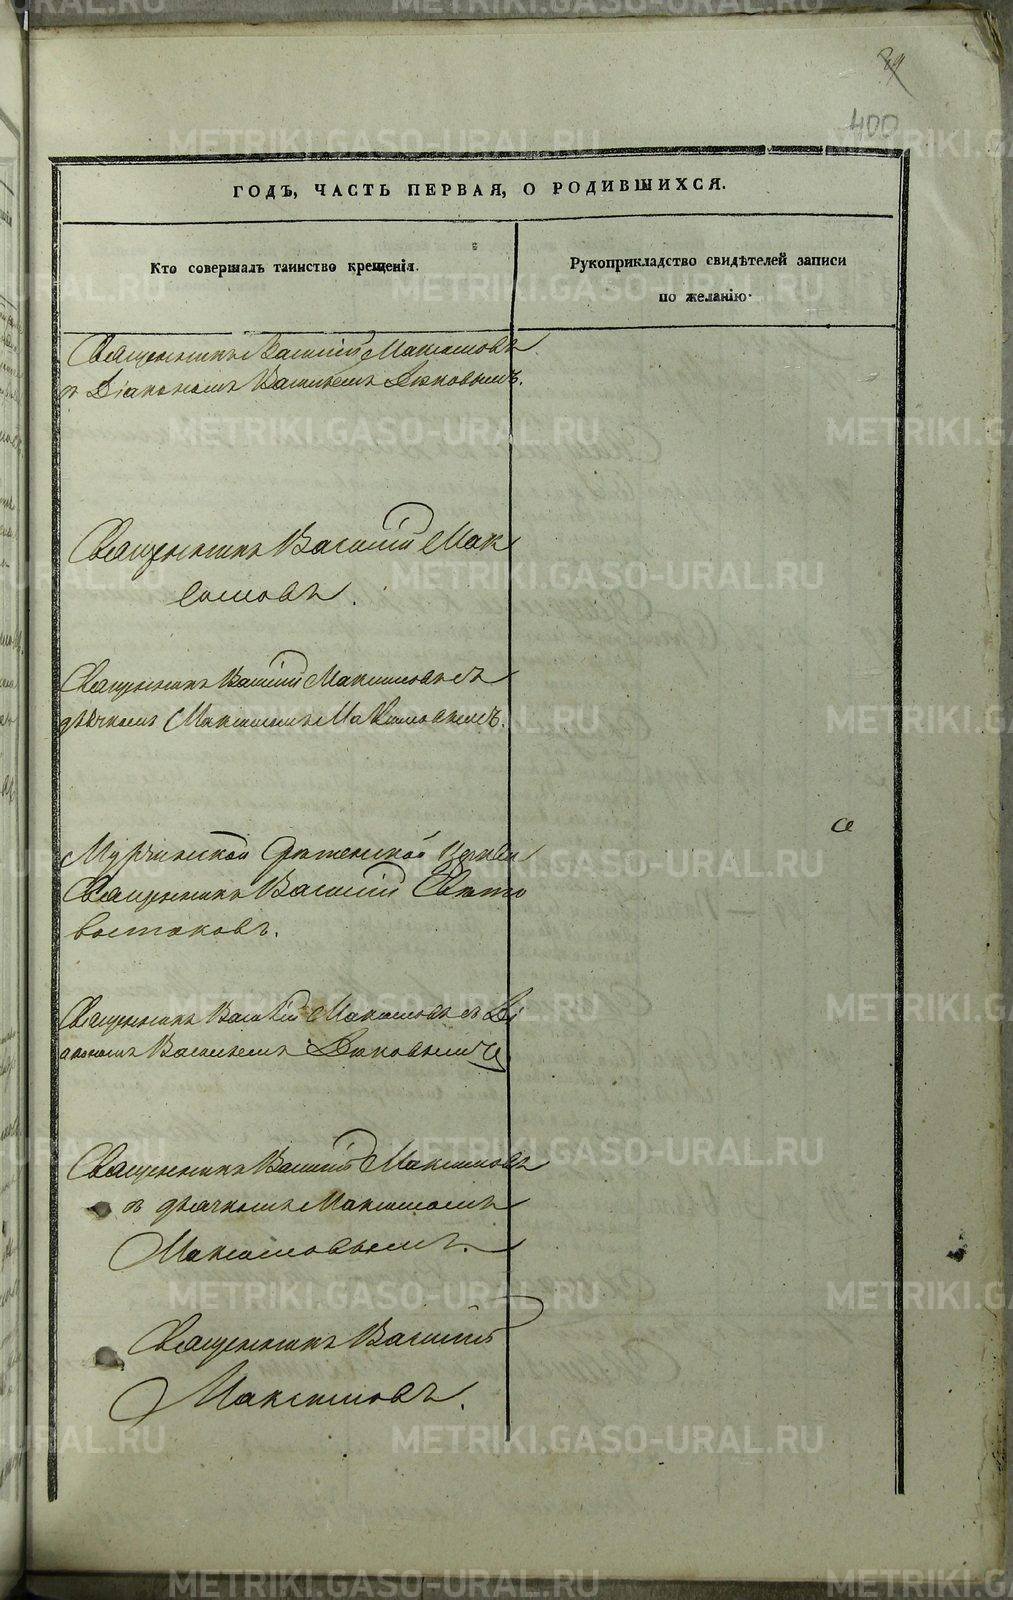 89
400
ГОДЪ, ЧАСТЬ ПЕРВАЯ, О РОДИВШИХСЯ.
Кто совершалъ таинство крещенія.
Рукоприкладство свидѣтелей записи
по желанію.
Священникъ Василій Максимовъ
съ Діакономъ Васильемъ
Священникъ Василій Мак
симовъ.
Священникъ Василій Максимовъ съ
дьячкомъ Максимомъ Максимовымъ.
Мурзинской Срѣтенской Церкви
Священникъ Василій Свято
востоковъ.
Священникъ Василій Максимовъ съ Ді
акономъ Васильемъ
Священникъ Василій Максимовъ
съ дьячкомъ Максимомъ
Максимовымъ.
Священникъ Василій
Максимовъ.
METRIKI.GASO-URAL.RU